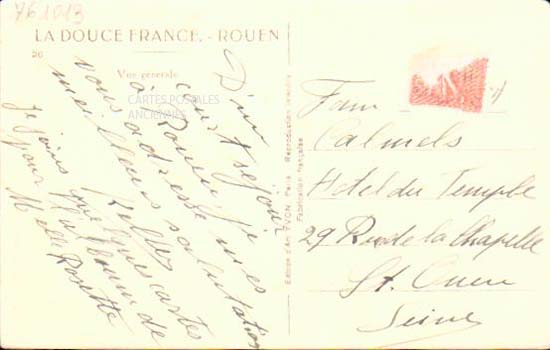 761013
LA DOUCE FRANCE. - ROUEN
26
Vue generale
CARTES POSTALES
ANCIENNES
D'un
court séjour
à Rouen je
vous adresse mes
meilleures salutations
Je joins quelques cartes
pour l'album de
Melle Rosette
Editions d'Art YVON, Paris. Reproduction interdite
Fabrication française
Fam
Calmels
Hotel du Temple
29 Rue de la Chapelle
St. Ouen
Seine